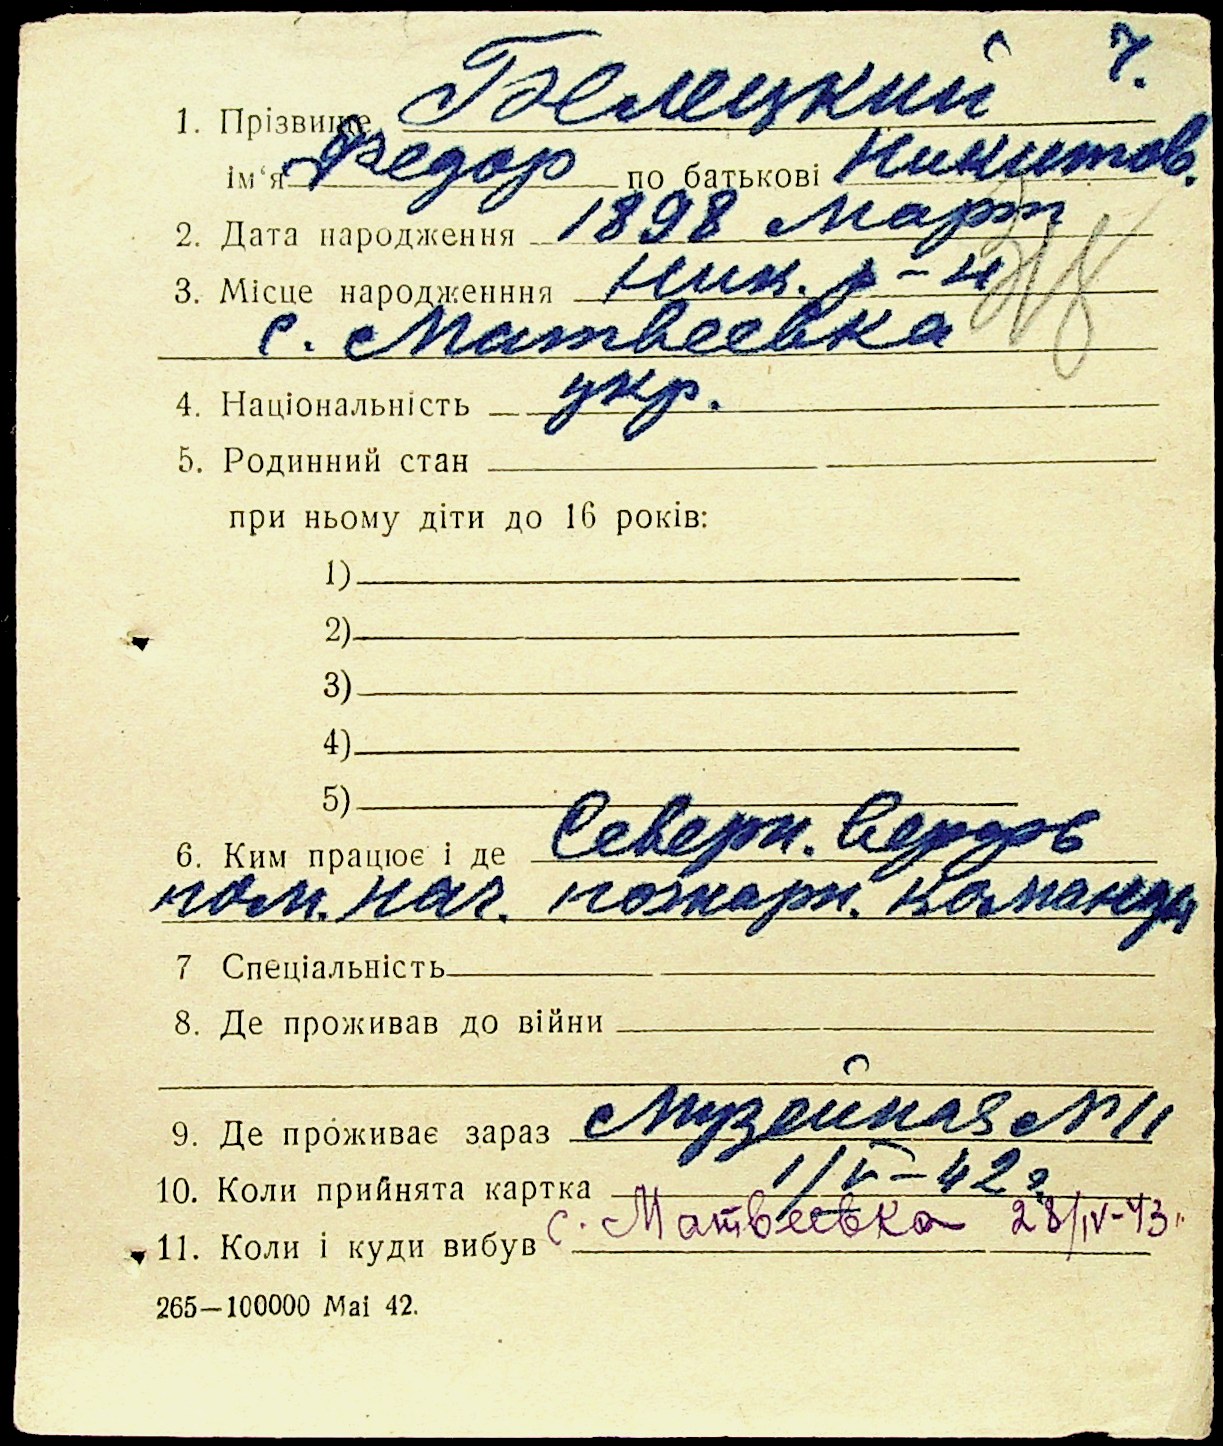 ч.
1. Прізвище Белецкий
ім'я Федор по батькові Никитов.
2. Дата народження 1898 март
3. Місце народженння Ник. р-н
с. Матвеевка
4. Національність укр.
5. Родинний стан
при ньому діти до 16 років:
1)
2)
3)
4)
5)
6. Ким працює і де Северн. Верфь
пом. нач. пожарн. команды
7 Спеціальність
8. Де проживав до війни
9. Де проживає зараз Музейная № 11
10. Коли прийнята картка 1/V-42 г.
11. Коли і куди вибув с. Матвеевка 28/IV-43 г.
265—100000 Mai 42.